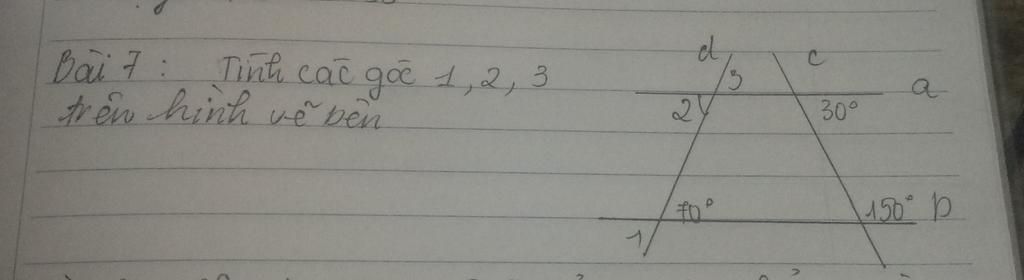 Bài 7 : Tính các góc 1, 2, 3
trên hình vẽ bên
d c
3
a
2 30°
70° 150° b
1